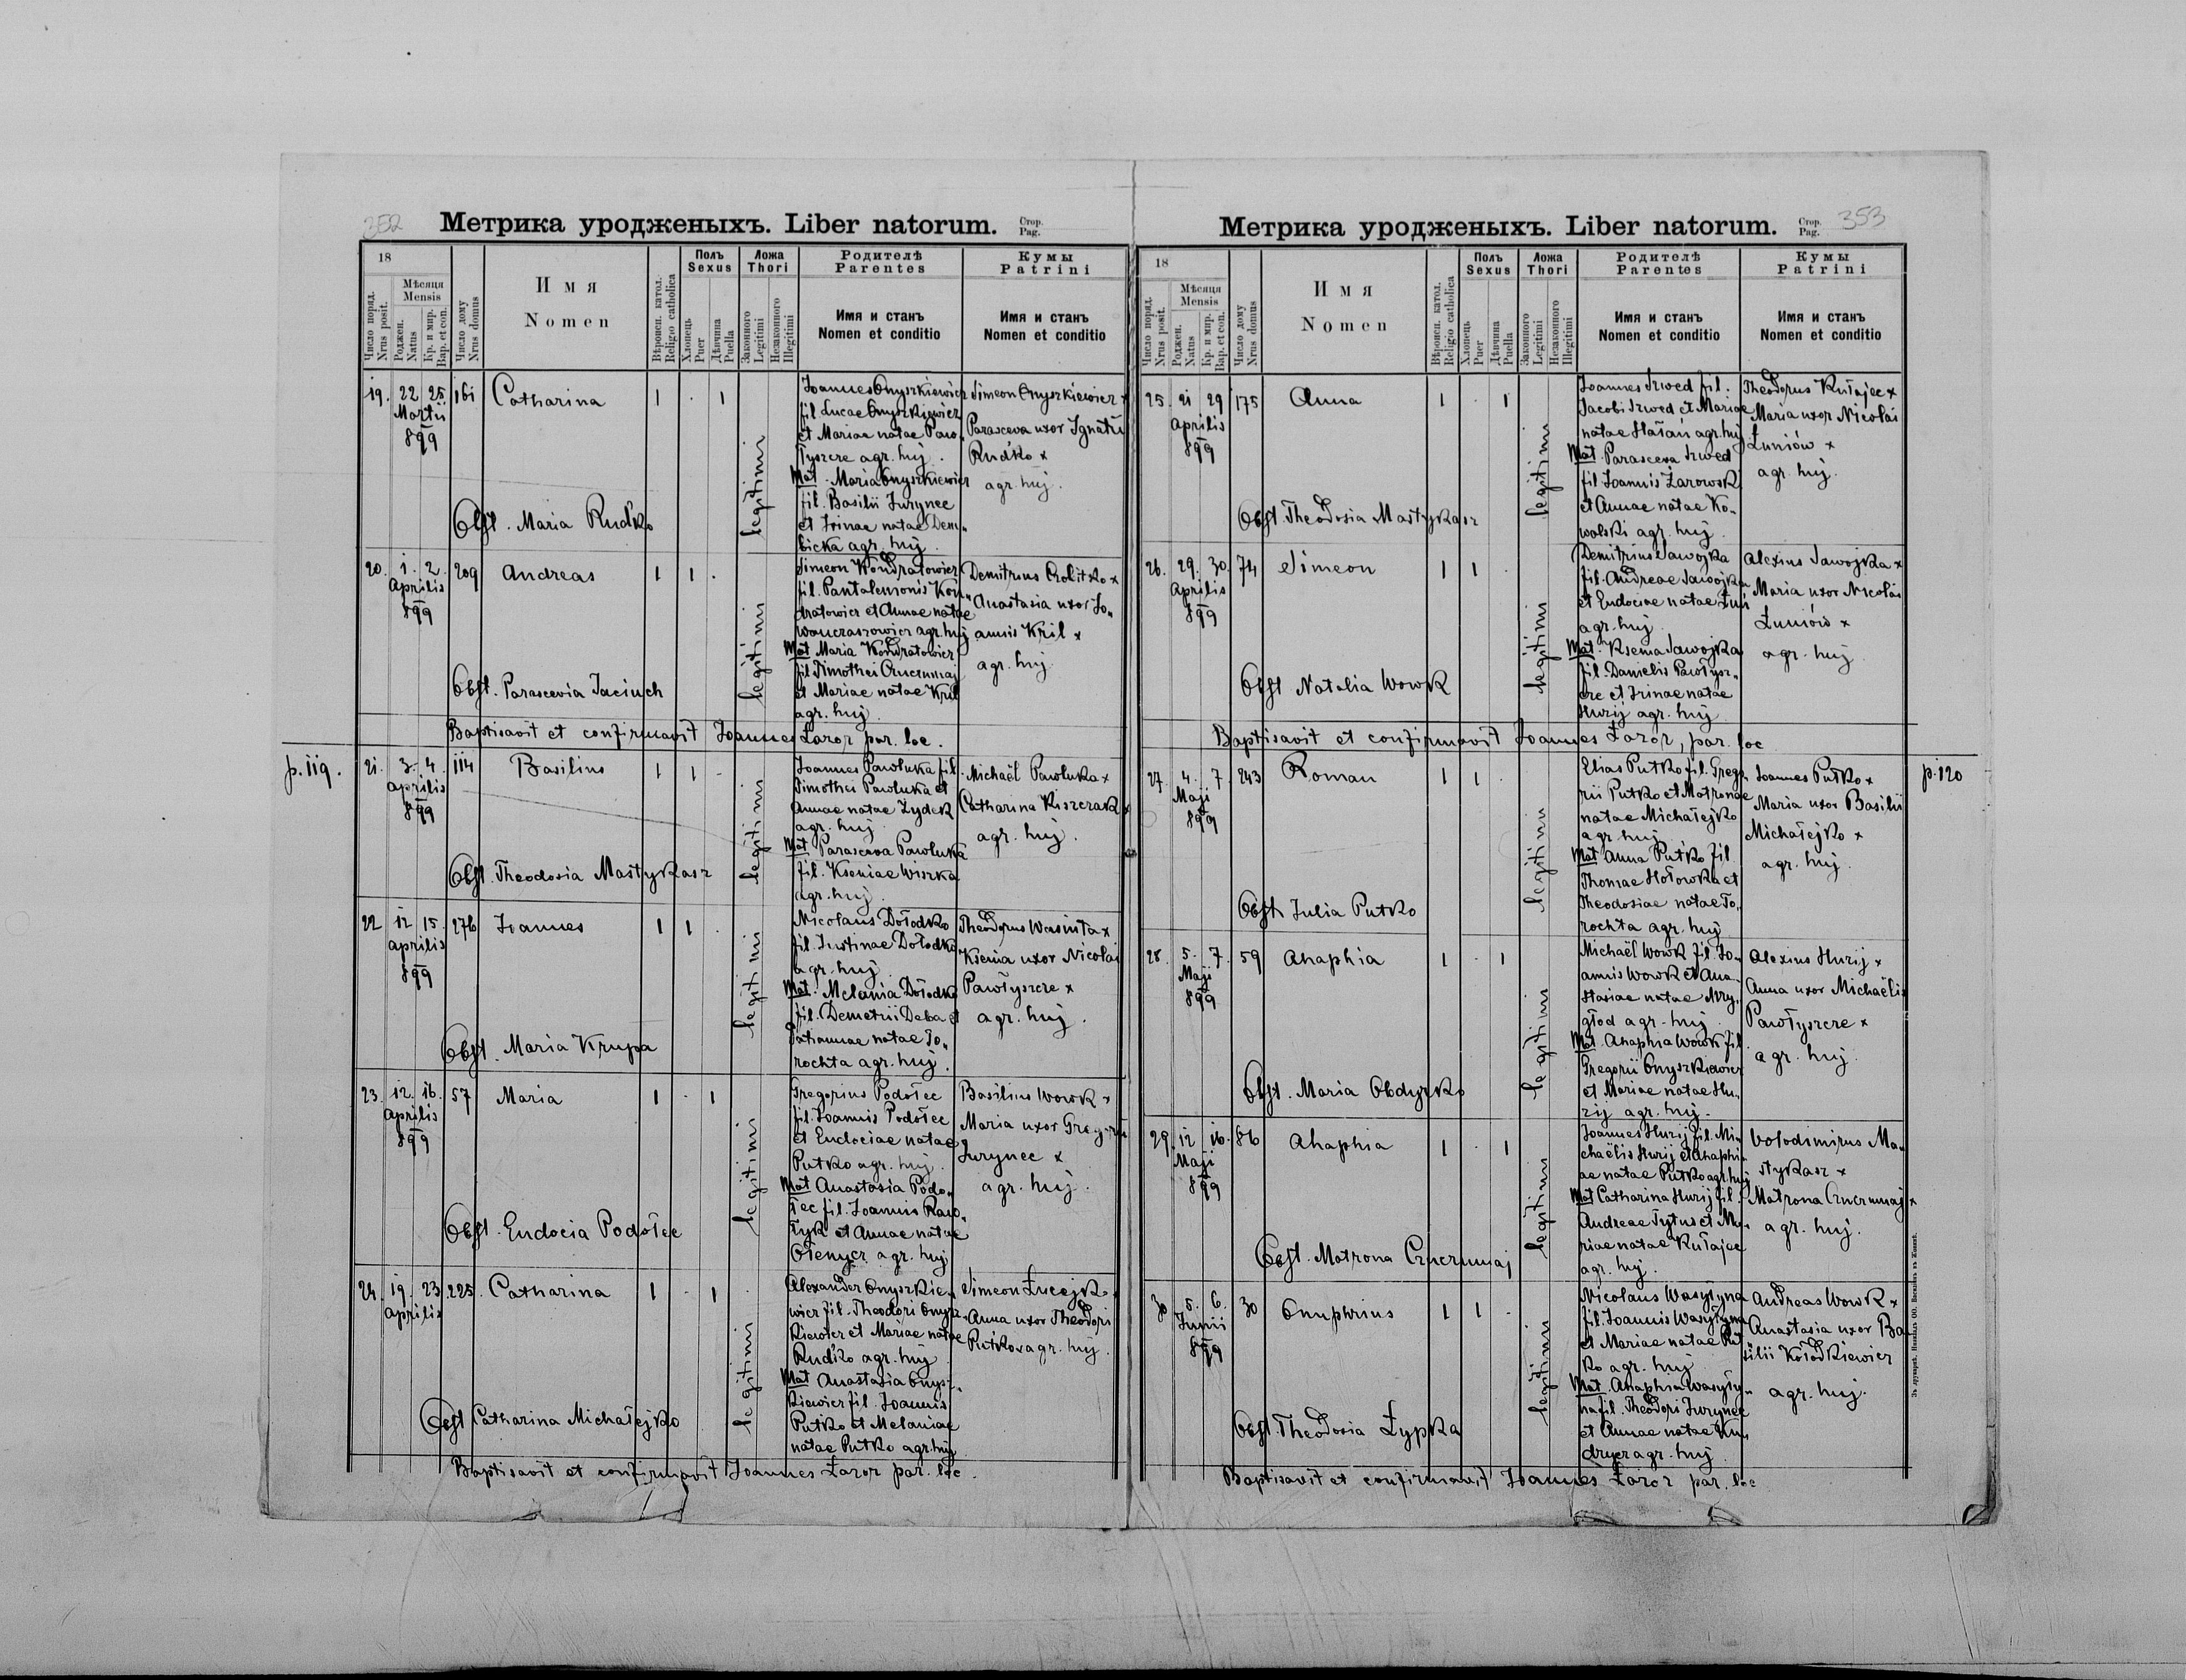 352
Метрика уродженыхъ. Liber natorum. Стор. Pag.
18
Мѣсяця Mensis
Число поряд. Nrus posit.
Роджен. Natus
Кр. и мир. Bap. et con.
Число дому Nrus domus
Имя Nomen
Вѣроисп. катол. Religio catholica
Полъ Sexus
Хлопець Puer
Дѣвчина Puella
Ложа Thori
Законного Legitimi
Незаконного Illegitimi
Родителѣ Parentes
Имя и станъ Nomen et conditio
Кумы Patrini
Имя и станъ Nomen et conditio
19. 22 25 161 Catharina 1 . 1
Martii
899
legitimi
Joannes Onyszkiewicz
fil. Lucae Onyszkiewicz
et Mariae natae Paw„
łyszcze agr. huj.
Mat. Maria Onyszkiewicz
fil. Basilii Jurynec
et Irinae natae Dem„
bicka agr. huj.
Simeon Onyszkiewicz x
Parasceva uxor Ignatii
Rudko x
agr. huj.
Obst. Maria Rudko
20. 1. 2. 209 Andreas 1 1 .
Aprilis
899
legitimi
Simeon Kondratowicz
fil. Pantalemonis Kon„
dratowicz et Annae natae
agr. huj
Mat Maria Kondratowicz
fil Timothei Cruczmaj
et Mariae natae Kril
agr. huj.
Demitrius x
Anastasia uxor Jo„
annis Kril x
agr. huj.
Obst. Parascevia Jaciuch
Baptisavit et confirmavit Joannes Łazor par. loc.
p. 119.
21. 3. 4. 114 Basilius 1 1 .
Aprilis
899
legitimi
Joannes Pawluka fil.
Timothei Pawluka et
Annae natae Zydek
agr. huj.
Mat Parasceva Pawluka
fil. Kseniae Wiszka
agr. huj.
Michaël Pawluka x
Catharina Kiszczak x
agr. huj.
Obst. Theodosia Mastykasz
22 12 15. 276 Joannes 1 1 .
Aprilis
899
legitimi
Nicolaus Dołodko
fil. Justinae Dołodko
agr. huj.
Mat. Melania Dołodko
fil. Demetrii Deba et
Tatiannae natae To„
rochta agr. huj.
Theodorus Wasiuta x
Ksenia uxor Nicolai
Pawłyszcze x
agr. huj.
Obst. Maria Krupa
23. 12. 16. 57 Maria 1 . 1
Aprilis
899
legitimi
Gregorius Podołec
fil. Joannis Podołec
et Eudociae natae
Putko agr. huj.
Mat Anastasia Podo„
łec fil. Joannis Paw„
łyk et Annae natae
Ołenycz agr. huj
Basilius Wowk x
Maria uxor Gregorii
Jurynec x
agr. huj.
Obst. Eudocia Podołec
24. 19. 23. 225. Catharina 1 . 1 .
Aprilis
legitimi
Alexander Onyszkie„
wicz fil. Theodori Onysz„
kiewicz et Mariae natae
Rudko agr. huj
Mat Anastasia Onysz„
kiewicz fil. Joannis
Putko et Melaniae
natae Putko agr. huj
Simeon Łucejko
Anna uxor Theodori
Putko x agr. huj.
Obst Catharina Michałejko
Baptisavit et confirmavit Joannes Łazor par. loc.
Метрика уродженыхъ. Liber natorum. Стор. Pag.
353
18
Мѣсяця Mensis
Число поряд. Nrus posit.
Роджен. Natus
Кр. и мир. Bap. et con.
Число дому Nrus domus
Имя Nomen
Вѣроисп. катол. Religio catholica
Полъ Sexus
Хлопець Puer
Дѣвчина Puella
Ложа Thori
Законного Legitimi
Незаконного Illegitimi
Родителѣ Parentes
Имя и станъ Nomen et conditio
Кумы Patrini
Имя и станъ Nomen et conditio
25. 21 29 175 Anna 1 . 1
Aprilis
899
legitimi
Joannes Szwed fil.
Jacobi Szwed et Mariae
natae Hałań agr. huj.
Mat. Parasceva Szwed
fil Joannis Żarowski
et Annae natae Ko„
walski agr. huj.
Theodorus Kułajec x
Maria uxor Nicolai
Łuniów x
agr. huj.
Obst. Theodosia Mastykasz
26. 29. 30. 74 Simeon 1 1 .
Aprilis
899
legitimi
Demitrius Jawojka
fil. Andreae Jawojka
et Eudociae natae
agr. huj.
Mat. Ksenia Jawojka
fil. Danielis Pawłysz„
cze et Irinae natae
Hurij agr. huj.
Alexius Jawojka x
Maria uxor Nicolai
Łuniów x
agr. huj.
Obst Natalia Wowk
Baptisavit et confirmavit Joannes Łazor, par. loc
p. 120
27 4. 7. 243 Roman 1 1 .
Maji
899
legitimi
Elias Putko fil. Grego„
rii Putko et Matronae
natae Michałejko
agr. huj.
Mat Anna Putko fil.
Thomae Hołowka et
Theodosiae natae To„
rochta agr. huj
Joannes Putko x
Maria uxor Basilii
Michałejko x
agr. huj.
Obst. Julia Putko
28. 5. 7. 59 Ahaphia 1 . 1
Maji
899
legitimi
Michaël Wowk fil. Jo„
annis Wowk et Ana„
stasiae natae Mry„
głod agr. huj.
Mat. Ahaphia Wowk fil
Gregorii Onyszkiewicz
et Mariae natae Hu„
rij agr. huj.
Alexius Hurij x
Anna uxor Michaëlis
Pawłyszcze x
agr. huj.
Obst. Maria Obdyrko
29. 12 16. 86 Ahaphia 1 . 1
Maji
899
legitimi
Joannes Hurij fil. Mi„
chaëlis Hurij et Ahaphi„
ae natae Putko agr. huj
Mat Catharina Hurij fil.
Andreae Tytus et Ma„
riae natae Kułajec
agr. huj.
Volodimirus Ma„
stykasz x
Matrona Cruczmaj x
agr. huj.
Obst. Matrona Cruczmaj
30 5. 6. 30 Onuphrius 1 1 .
Junii
899
legitimi
Nicolaus Wasyłyna
fil. Joannis Wasyłyna
et Mariae natae Put
ko agr. huj.
Mat. Ahaphia Wasyły„
na fil. Theodori Jurynec
et Annae natae Ku„
drycz agr. huj.
Andreas Wowk x
Anastasia uxor Ba
silii Kołodkiewicz
agr. huj.
Obst. Theodosia Łypka
Baptisavit et confirmavit Joannes Łazor par. loc